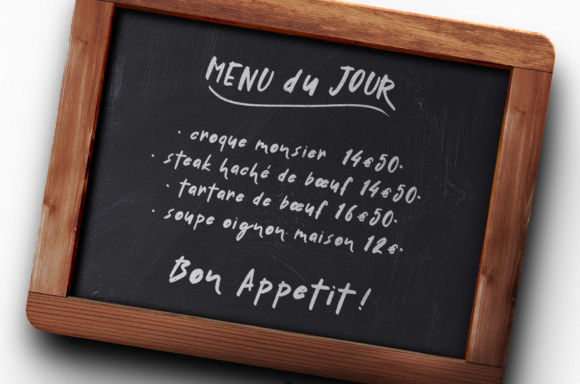 MENU du JOUR
· croque monsier 14€50·
· steak haché de bœuf 14€50·
· tartare de bœuf 16€50·
· soupe oignon maison 12€·
Bon Appetit!